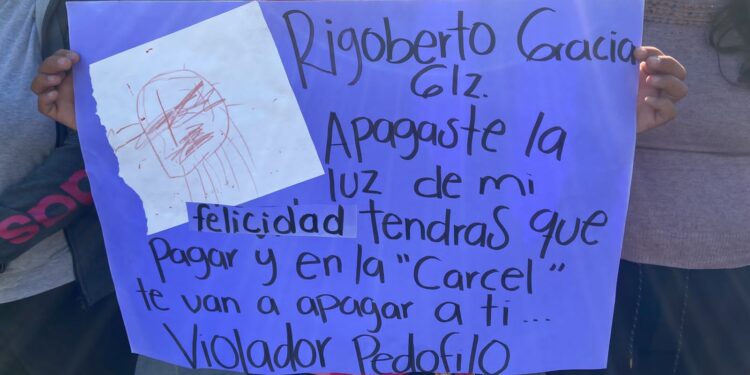 Rigoberto Gracia
Glz.
Apagaste la
luz de mi
felicidad tendras que
Pagar y en la "Carcel"
te van a apagar a ti...
Violador Pedofilo